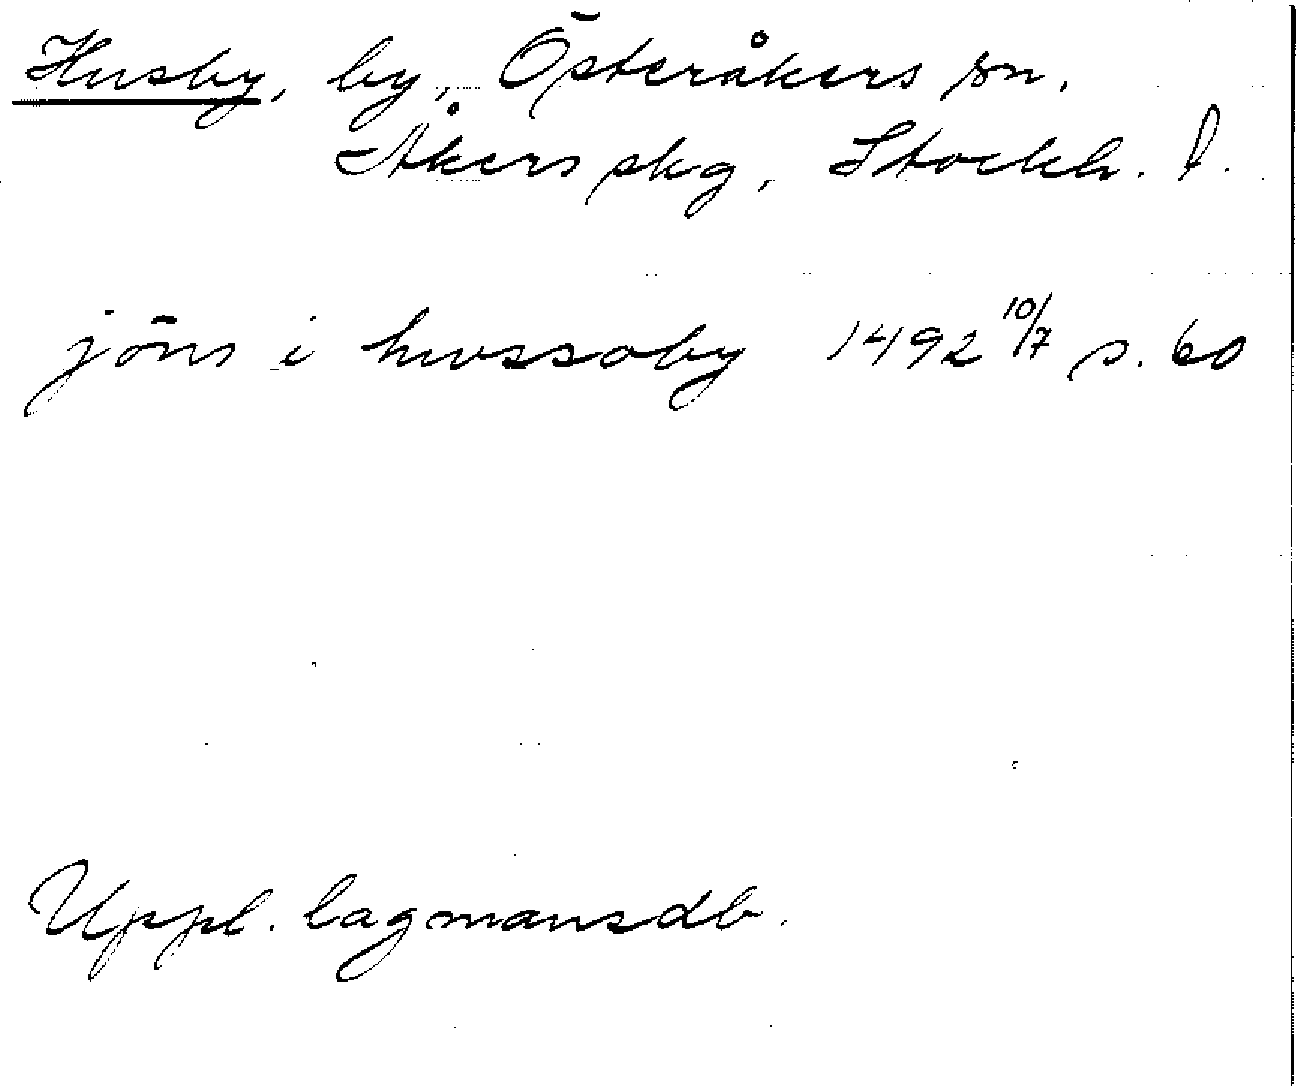 Husby, by, Österåkers sn,
Åkers skg, Stockh. l.
jöns i hwssoby 1492 10/7 s. 60
Uppl. lagmansdb.